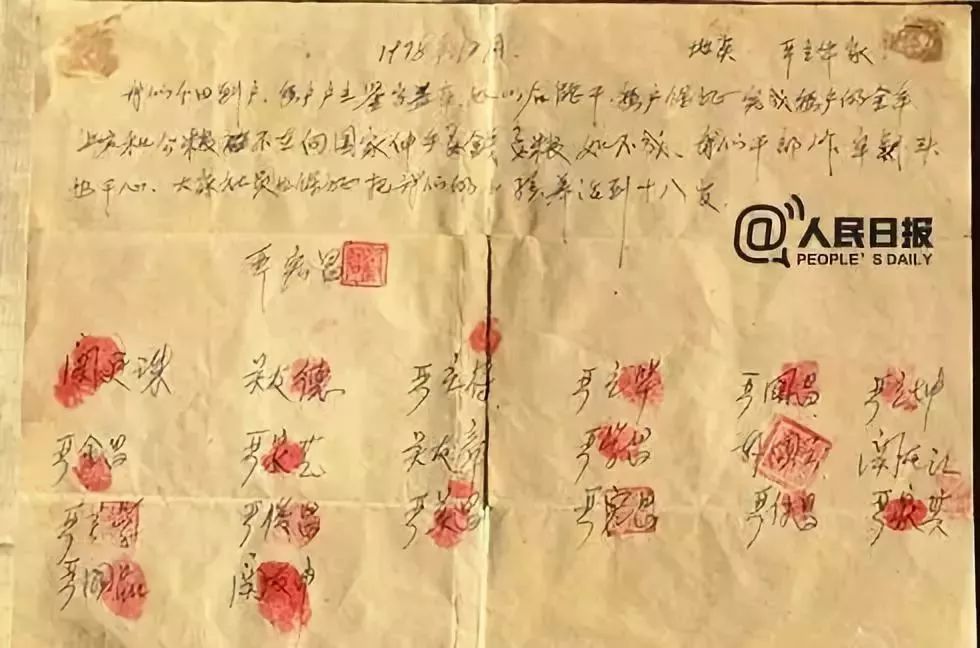 1978年12月. 地点 严立华家
我们分田到户,每户户主签字盖章,如以后能干,每户保证完成每户的全年
上交和公粮 不在向国家伸手要钱要粮 如不成、我们干部作牢刹头
也干心、大家社员也保证把我们的小孩养活到十八岁
严宏昌
@人民日报
PEOPLE'S DAILY
关廷珠 关友德 严立符 严立华 严国昌 严立坤
严金昌 严家芝 关友章 严学昌 韩国云 关友江
严立学 严俊昌 严美昌 严宏昌 严付昌 严家其
严国品 关友申